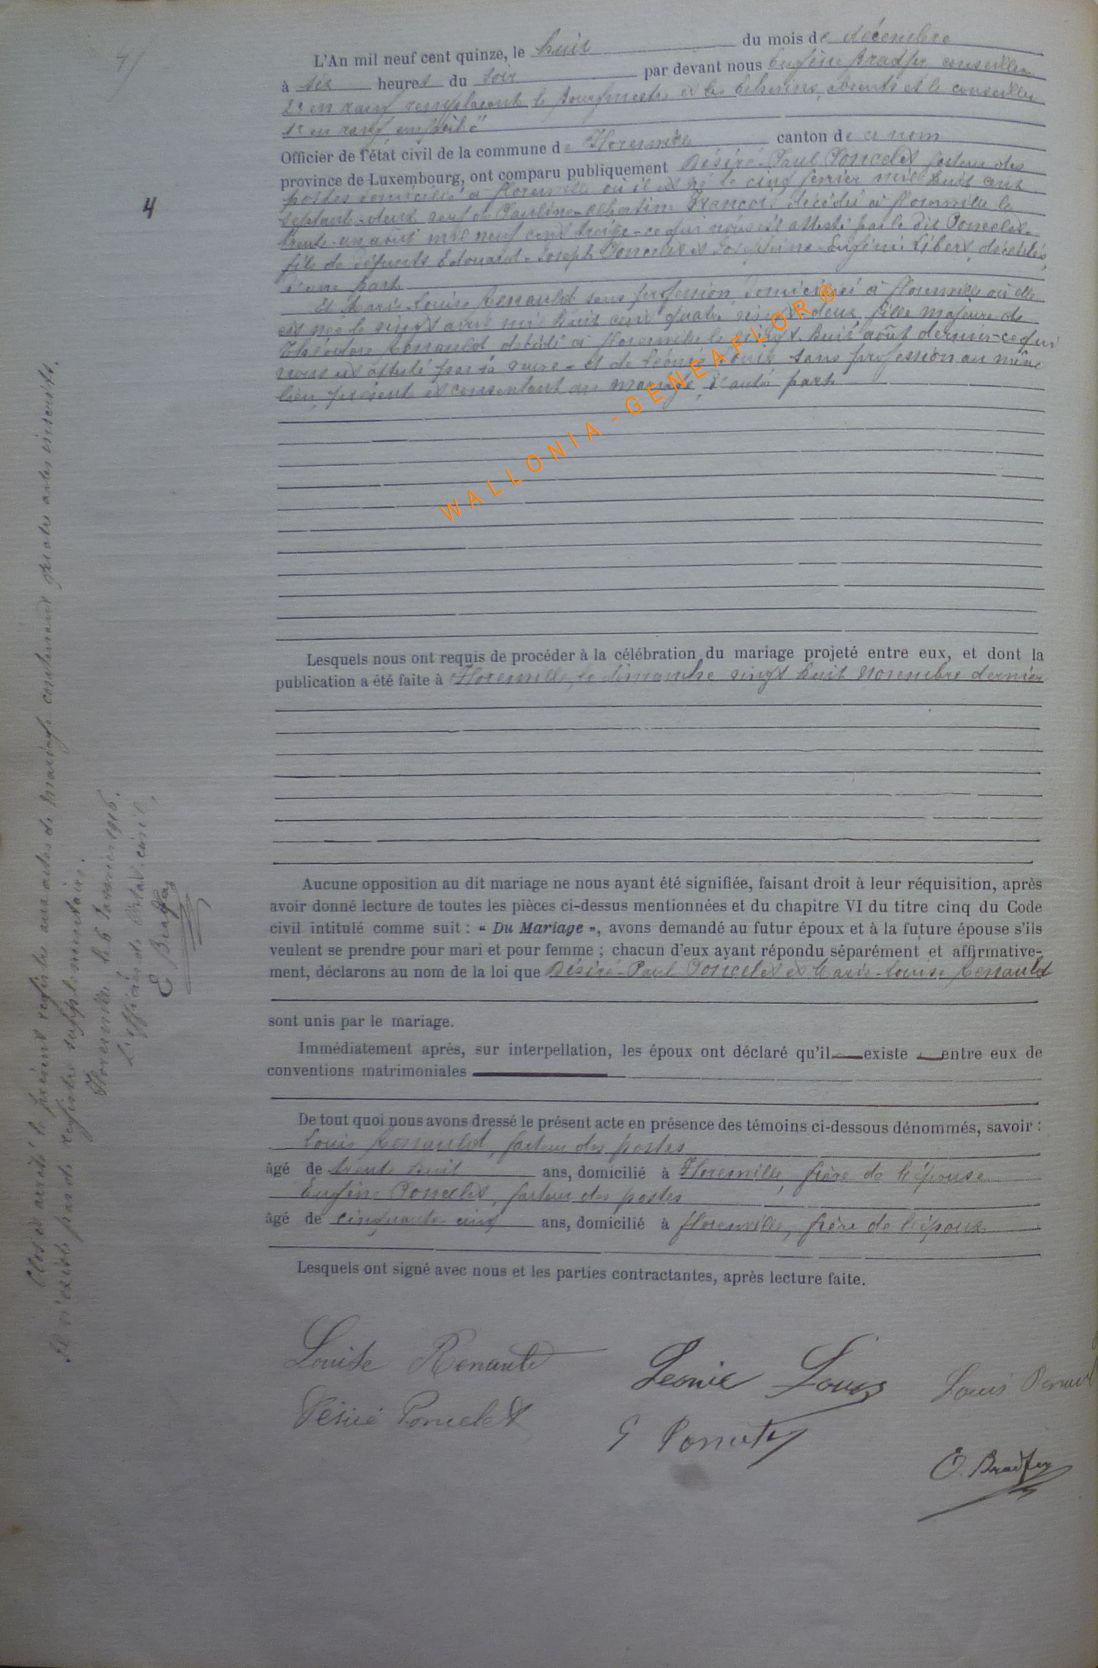 4/
L'An mil neuf cent quinze, le huit du mois de décembre
à six heures du soir par devant nous Eugène Bradfer conseiller
2e en rang remplaçant le bourgmestre et les échevins absents et le conseiller
1er en rang empêché
Officier de l'état civil de la commune de Florenville canton de ce nom
province de Luxembourg, ont comparu publiquement Désiré-Paul Poncelet facteur des
postes domicilié à Florenville où il est né le cinq février mil huit cent
septante-deux veuf de Pauline François décédée à Florenville le
trente-un août mil neuf cent treize - ce qui nous est attesté par le dit Poncelet -
fils de défunts Edouard-Joseph Poncelet et Joséphine-Eugénie Libert, décédés,
d'une part
4
Et Marie-Louise Renauld sans profession domiciliée à Florenville où elle
est née le vingt avril mil huit cent quatre vingt deux, fille majeure de
Théodore Renauld décédé à Florenville le vingt huit août dernier - ce qui
nous est attesté par sa veuve - et de Léonie Louis sans profession au même
lieu, présente et consentant au mariage, d'autre part
WALLONIA-GENEAFLOR®
Lesquels nous ont requis de procéder à la célébration du mariage projeté entre eux, et dont la
publication a été faite à Florenville, le dimanche vingt huit novembre dernier
Aucune opposition au dit mariage ne nous ayant été signifiée, faisant droit à leur réquisition, après
avoir donné lecture de toutes les pièces ci-dessus mentionnées et du chapitre VI du titre cinq du Code
civil intitulé comme suit : « Du Mariage », avons demandé au futur époux et à la future épouse s'ils
veulent se prendre pour mari et pour femme ; chacun d'eux ayant répondu séparément et affirmative-
ment, déclarons au nom de la loi que Désiré-Paul Poncelet et Marie-Louise Renauld
sont unis par le mariage.
Immédiatement après, sur interpellation, les époux ont déclaré qu'il existe entre eux de
conventions matrimoniales
De tout quoi nous avons dressé le présent acte en présence des témoins ci-dessous dénommés, savoir :
Louis Renauld, facteur des postes
âgé de trente huit ans, domicilié à Florenville, frère de l'épouse
Eugène Poncelet, facteur des postes
âgé de cinquante cinq ans, domicilié à Florenville, frère de l'époux
Lesquels ont signé avec nous et les parties contractantes, après lecture faite.
Louise Renauld
Léonie Louis
Louis Renauld
Désiré Poncelet
E Poncelet
E. Bradfer
Clos et arrêté le présent registre aux actes de mariage contenant quatre actes inscrits.
Il n'existe pas de registre supplémentaire.
Florenville le 6 Janvier 1916.
L'officier de l'état-civil,
E Bradfer